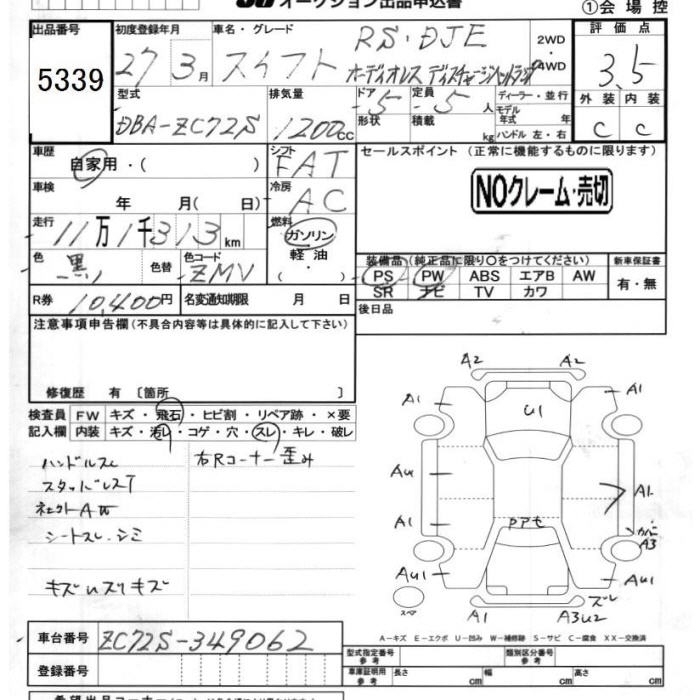 オークション出品申込書
①会場控
出品番号
5339
初度登録年月
27 3月
車名・グレード
スイフト
RS・DJE
オーディオレス ディスチャージヘッドランプ
2WD・4WD
評価点
3.5
型式
DBA-ZC72S
排気量
1200cc
ドア 5
形状
定員 5人
積載 kg
ディーラー・並行
モデル 年
ハンドル 左・右
外装 内装
C C
車歴
自家用・( )
シフト
FAT
セールスポイント (正常に機能するものに限ります)
NOクレーム・売切
車検
年 月( 日)
冷房
AC
走行
11万1千313km
燃料
ガソリン
軽油・( )
色
黒
色替
色コード
ZMV
装備品(純正品に限り○をつけてください)
PS PW ABS エアB AW
SR ナビ TV カワ
新車保証書
有・無
R券
10,400円
名変通知期限 月 日
後日品
注意事項申告欄(不具合内容等は具体的に記入して下さい)
修復歴 有 〔箇所 〕
検査員 FW キズ・飛石・ヒビ割・リペア跡・×要
記入欄 内装 キズ・汚レ・コゲ・穴・スレ・キレ・破レ
ハンドルスレ
右Rコーナー歪み
スタッドレスT
シートスレ・シミ
A2 A2
A1 A1
U1
AU
A1
A1
A3
AU1 AU1
スペア
ズレ
A1 A3U2
A-キズ E-エクボ U-凹み W-補修跡 S-サビ C-腐食 XX-交換済
車台番号
ZC72S-349062
登録番号
型式指定番号 参考
類別区分番号 参考
車庫証明用 参考 長さ 幅 高さ